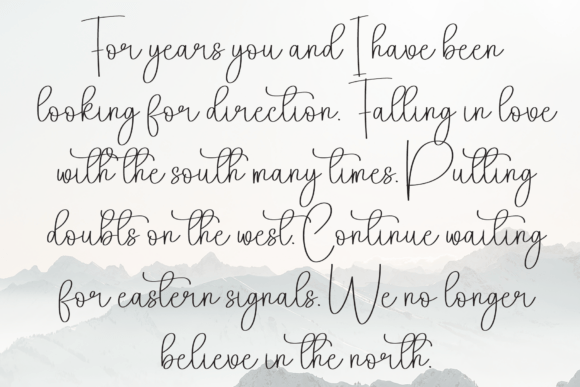 For years you and I have been
looking for direction. Falling in love
with the south many times. Putting
doubts on the west. Continue waiting
for eastern signals. We no longer
believe in the north.